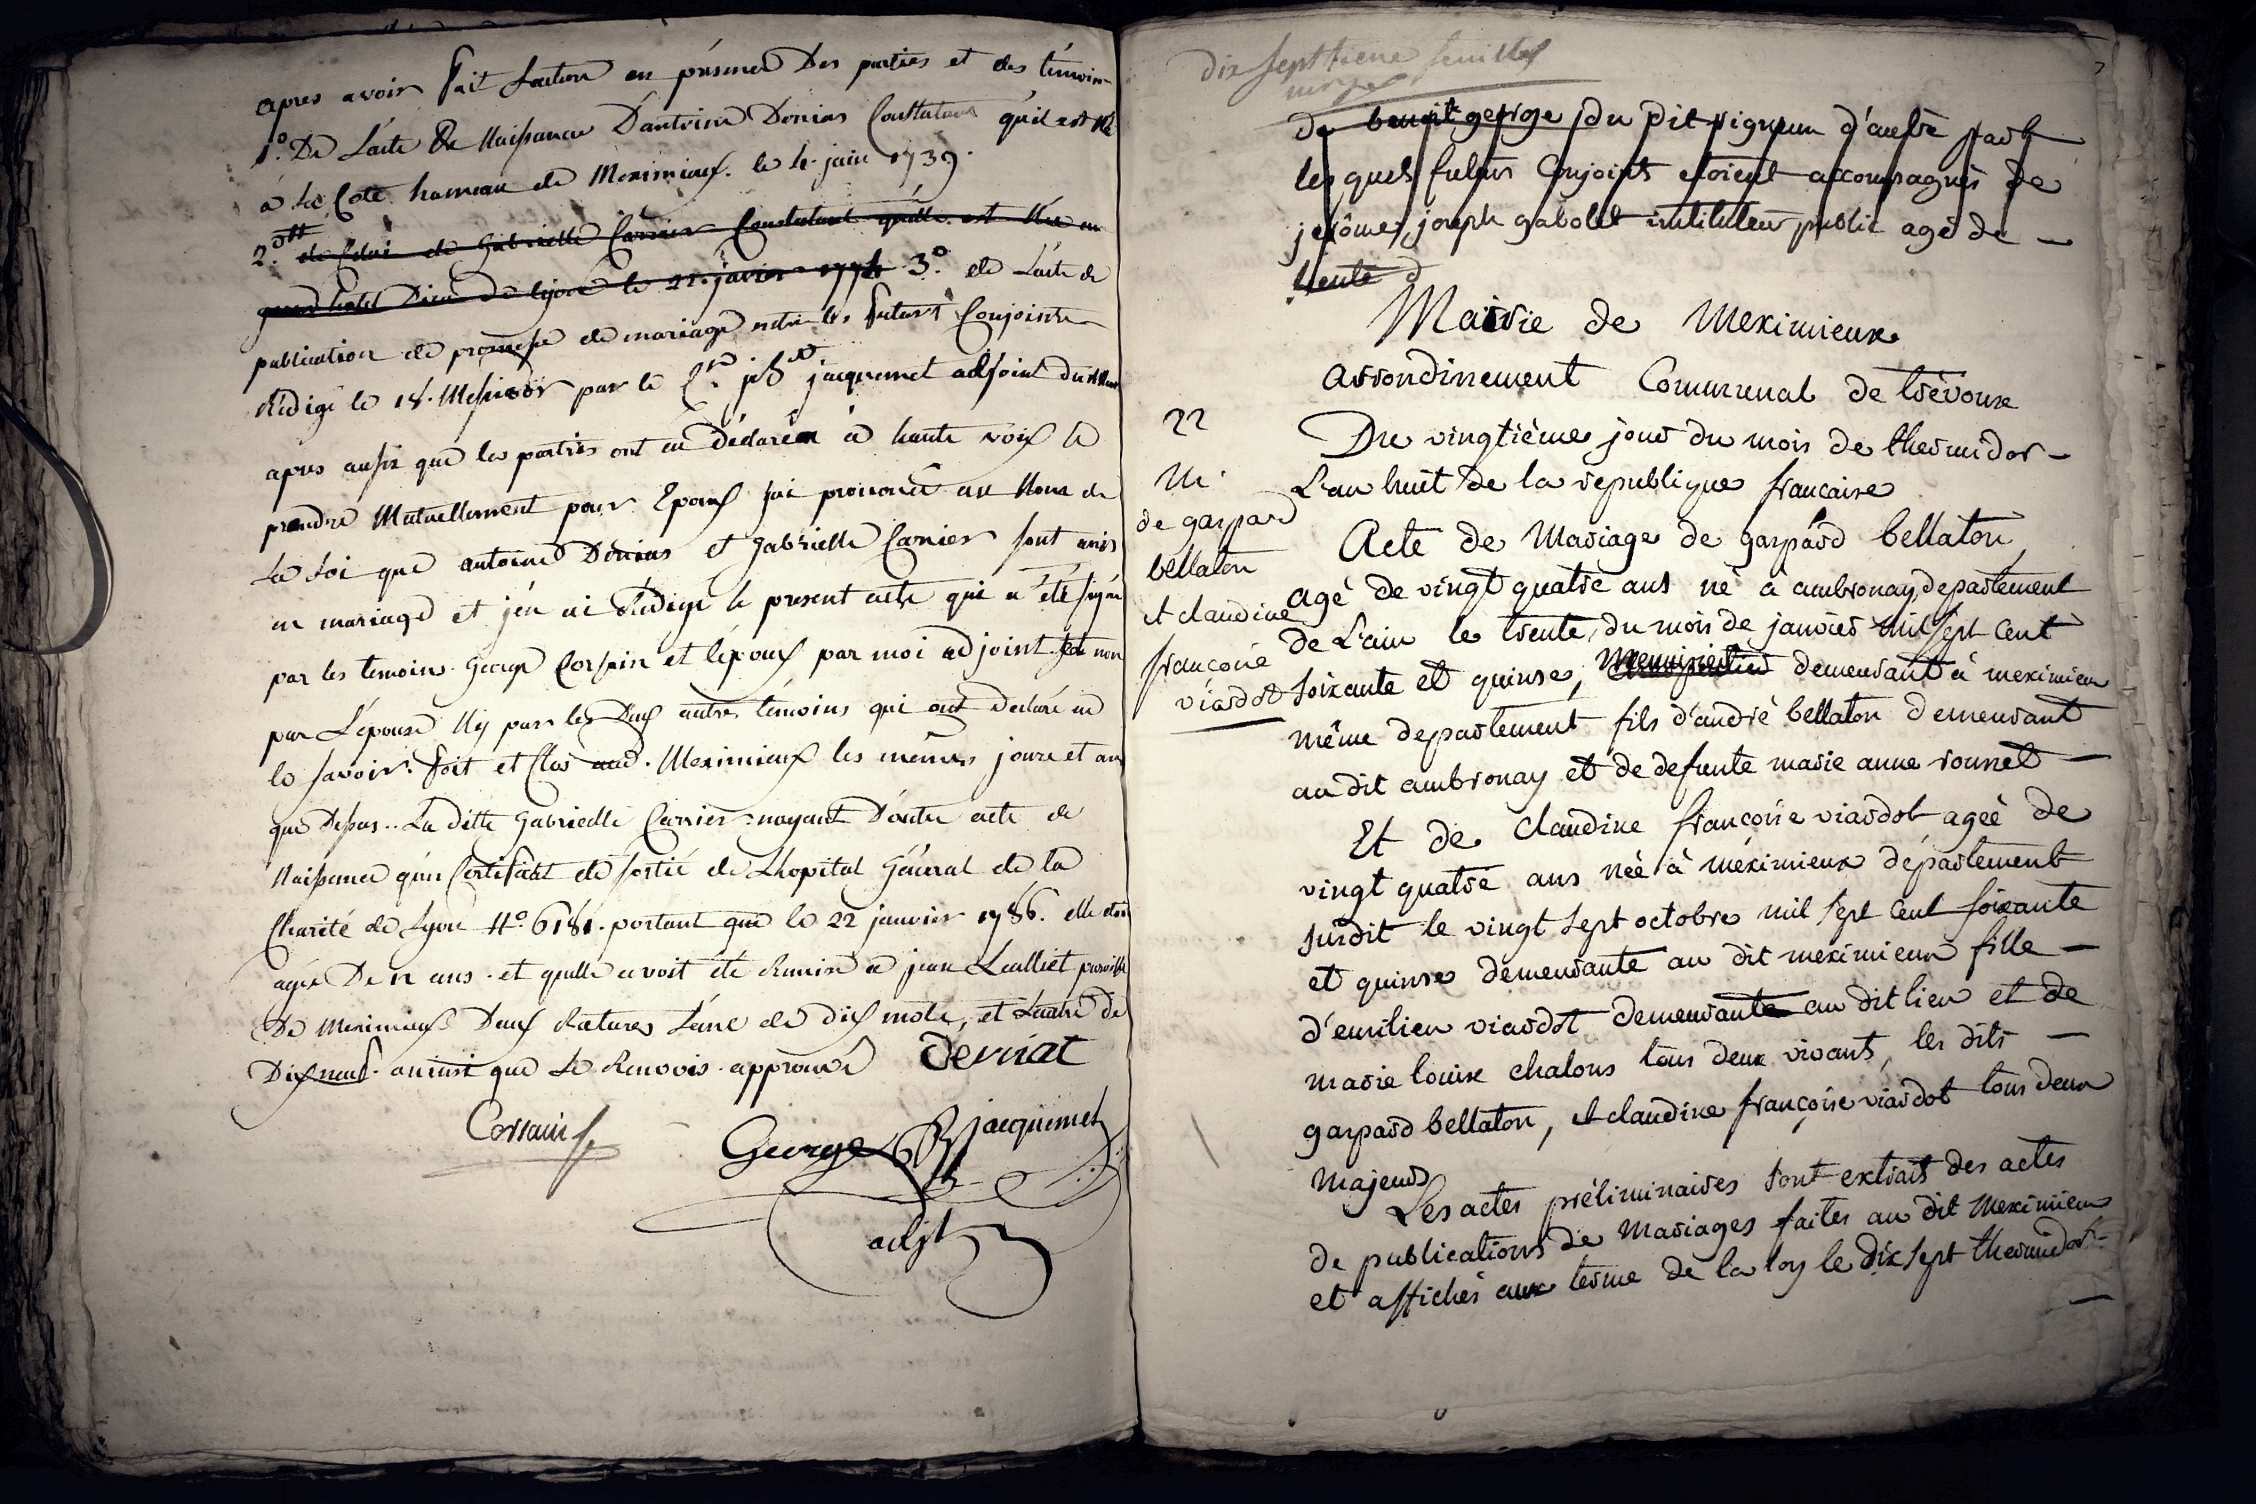 apres avoir fait Lecture en présence Des parties et des témoins
1.° De L'acte De Naissance D'antoine Denias Constatant qu'il est Né
à La Cote hameau de Meximieux. le 4. juin 1739.
2.° de Celui de Gabrielle Carrier Constatant qu'elle est Née au
grand hotel Dieu de lyon le 22. javier 1774 3.° de L'acte de
publication de promesse de mariage entre les futurs Conjoints
Rédigé le 18. Messidor par le jacquemet adjoint
apres aussi que les parties ont eu Déclaré à haute voix se
prendre Mutuellement pour Epoux jai prononcé au Nom de
La Loi que antoine Denias et Gabrielle Carrier sont unis
en mariage et j'en ai Rédigé le present acte qui a été signé
par les temoins George Corsain et l'époux par moi adjoint et non
par L'épouse Ny par les Deux autres témoins qui ont declaré ne
le savoir. foit et Clos aud. Meximieux les mêmes jours et an
que Dessus.. La ditte Gabrielle Carrier nayant D'autre acte de
Naissance qu'un Certificat de sortie de Lhopital Général de la
Charité de Lyon N.° 6181. portant que le 22 janvier 1786. elle etoit
agée De 12 ans. et qu'elle avoit été Remise a jean paroisse
De Meximieux Deux Ratures L'une de dix mots, et L'autre de
Dix neuf. ainsi que Le Renvois approuvé Deniat
Corsain
George jacquemet
adjt
dix septieme feuillet
de benoit george du dit vigneron d'autre part
les quels futurs Conjoints etoient accompagnés de
jerôme joseph gabolet instituteur public agé de
trente
Mairie de Meximieux
arrondinement Communal de trévoux
22
Du vingtième jour du mois de thermidor
L'an huit de la republique francaise
M.
de gaspard
bellaton
et claudine
françoise
viardot
Acte de Mariage de gaspard bellaton,
agé de vingt quatre ans né à ambronay, departement
de L'ain le trente, du mois de janvier mil sept cent
soixante et quinse, Menuisier demeurant à meximieux
même departement fils d'andré bellaton demeurant
au dit ambronay et de defunte marie anne
Et de claudine françoise viardot ageé de
vingt quatre ans néé à méximieux département
susdit le vingt sept octobre mil sept cent soixante
et quinse demeurante au dit meximieux fille
d'emilien viardot demeurante au dit lieu et de
marie louise chalons tous deux vivants, les dits
gaspard bellaton, et claudine françoise viardot tous deux
majeurs
Les actes préliminaires sont extrait des actes
de publications de mariages faites au dit meximieux
et affichés aux terme de la loy le dix sept thermidor